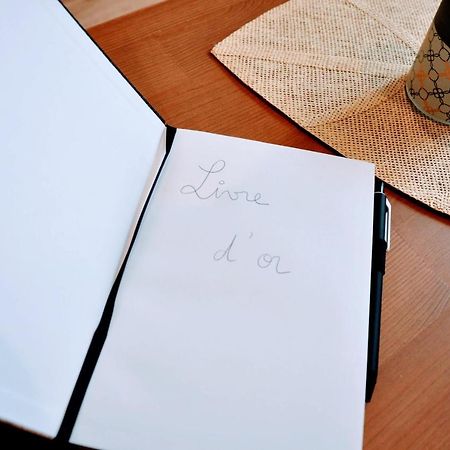 Livre
d'or